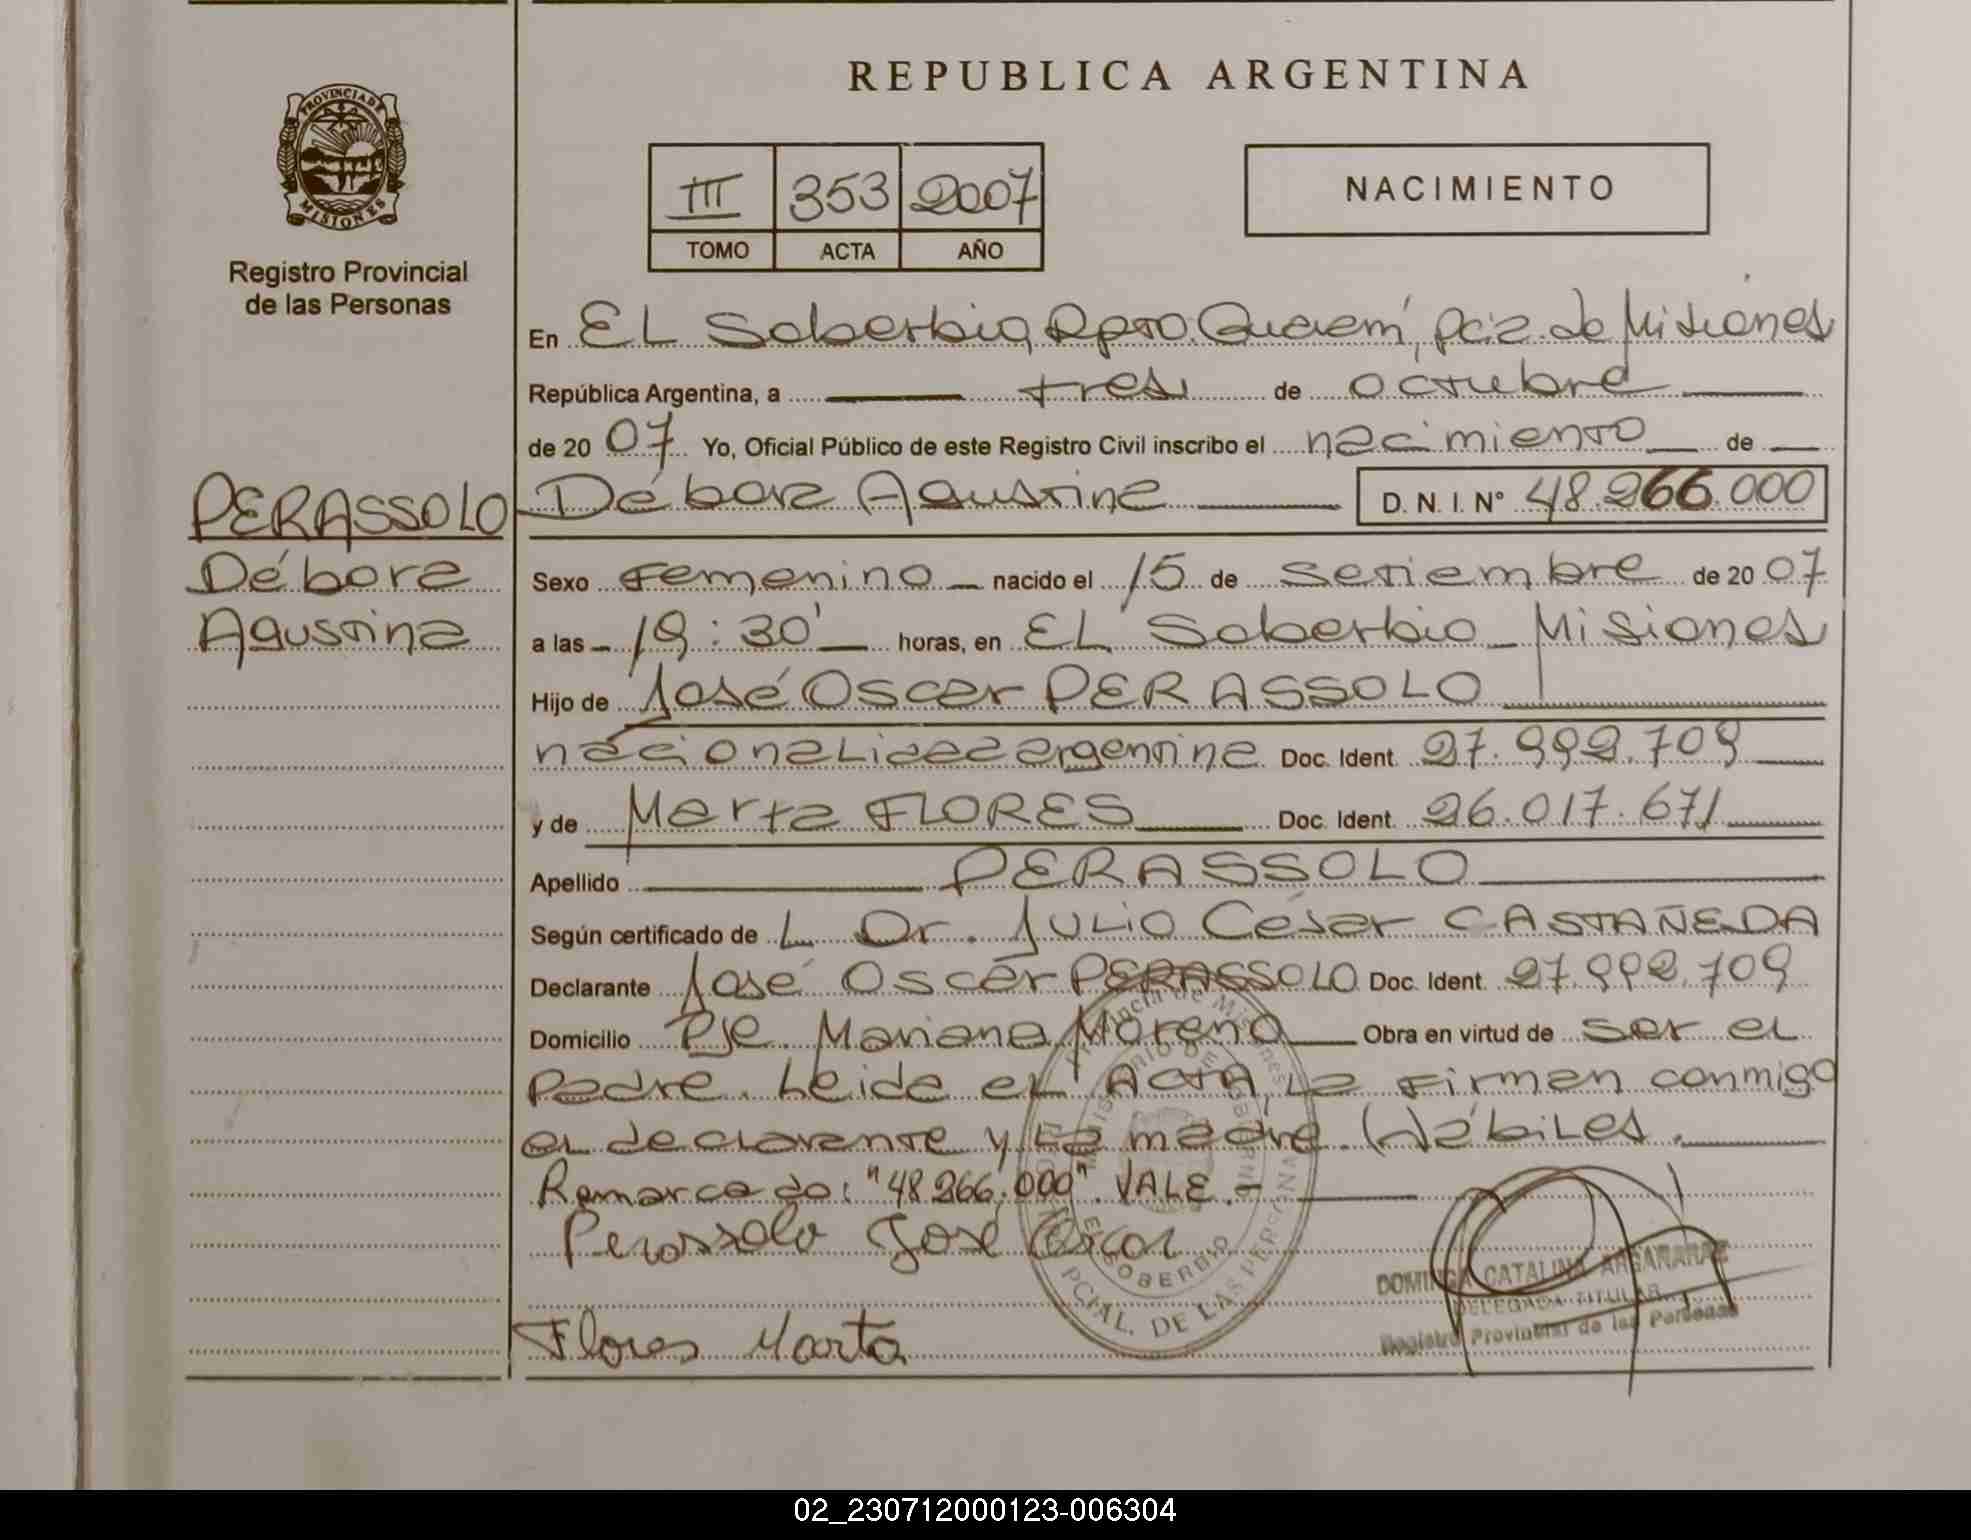 REPUBLICA ARGENTINA
PROVINCIA DE
MISIONES
Registro Provincial
de las Personas
III 353 2007
TOMO ACTA AÑO
NACIMIENTO
En EL Soberbio, Dpto. Guaraní, Pcia. de Misiones
República Argentina, a tres de octubre
de 2007 Yo, Oficial Público de este Registro Civil inscribo el nacimiento de
PERASSOLO
Débora
Agustina
Débora Agustina D. N. I. Nº 48.266.000
Sexo Femenino nacido el 15 de Setiembre de 2007
a las 19:30' horas, en EL Soberbio Misiones
Hijo de José Oscar PERASSOLO
nacionalidad argentina Doc. Ident. 27.992.709
y de Marta FLORES Doc. Ident. 26.017.671
Apellido PERASSOLO
Según certificado de L Dr. JULIO César CASTAÑEDA
Declarante José Oscar PERASSOLO Doc. Ident. 27.992.709
Domicilio Pje. Mariano Moreno Obra en virtud de ser el
padre. Leida el ACTA, La firman conmigo
el declarante y La madre. Hábiles.
Remarcado: "48266.000". VALE.-
Perassolo José Oscar
Flores Marta
Provincia de Misiones
EL SOBERBIO
PCIAL. DE LAS PERSONAS
DOMINGA CATALINA ARGAÑARAZ
DELEGADA TITULAR
Registro Provincial de las Personas
02_230712000123-006304